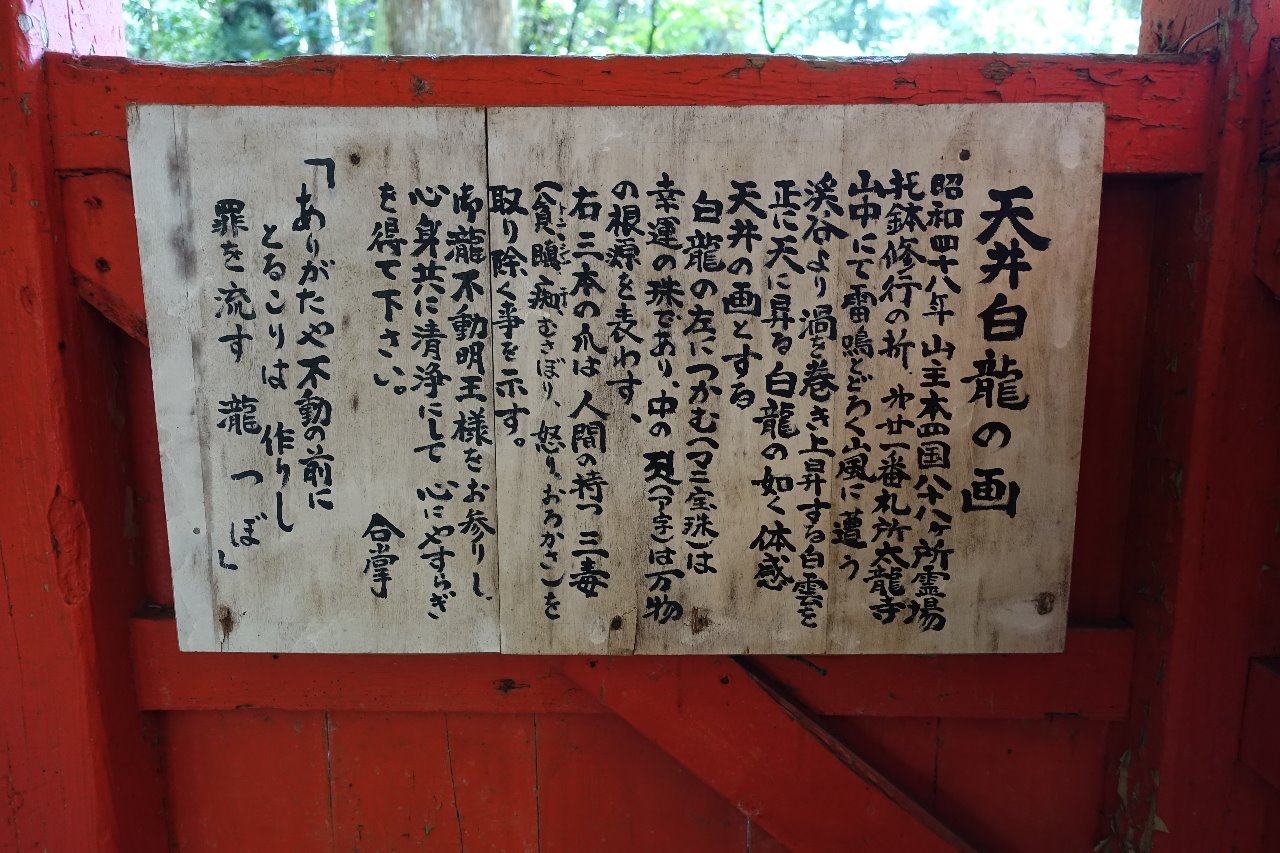 天井白龍の画
昭和四十八年 山主本四国八十八ヶ所霊場
托鉢修行の折 廿一番札所太龍寺
山中にて雷鳴とどろく山風に遭う
渓谷より渦を巻き上昇する白雲を
正に天に昇る白龍の如く体感
天井の画とする
白龍の左につかむ(マニ宝珠)は
幸運の珠であり、中の (ア字)は万物
の根源を表わす、
右三本の爪は人間の持つ三毒
(貪瞋痴むさぼり、怒り、おろかさ)を
取り除く事を示す。
御瀧不動明王様をお参りし
心身共に清浄にして心にやすらぎ
を得て下さい。 合掌
「ありがたや不動の前に
とるこりは 作りし
罪を流す瀧つぼ」